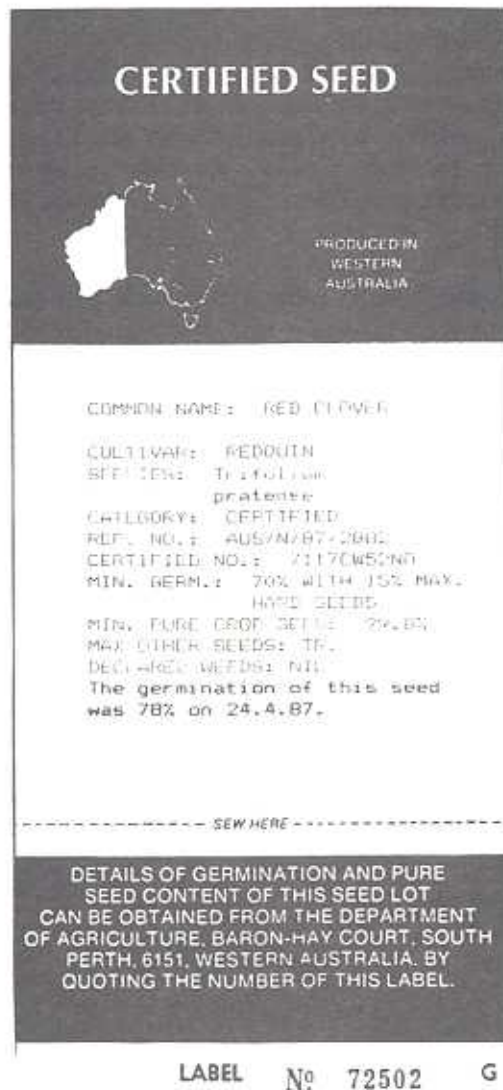 CERTIFIED SEED
PRODUCED IN
WESTERN
AUSTRALIA
COMMON NAME: RED CLOVER
CULTIVAR: REDQUIN
SPECIES: Trifolium
pratense
CATEGORY: CERTIFIED
REF. NO.: AUS/N/87-
CERTIFIED NO.:
MIN. GERM.: 70% WITH 15% MAX.
HARD SEEDS
MIN. PURE CROP SEED:
MAX OTHER SEEDS:
DECLARED WEEDS: NIL
The germination of this seed
was 78% on 24.4.87.
SEW HERE
DETAILS OF GERMINATION AND PURE
SEED CONTENT OF THIS SEED LOT
CAN BE OBTAINED FROM THE DEPARTMENT
OF AGRICULTURE, BARON-HAY COURT, SOUTH
PERTH, 6151, WESTERN AUSTRALIA. BY
QUOTING THE NUMBER OF THIS LABEL.
LABEL Nº 72502 G